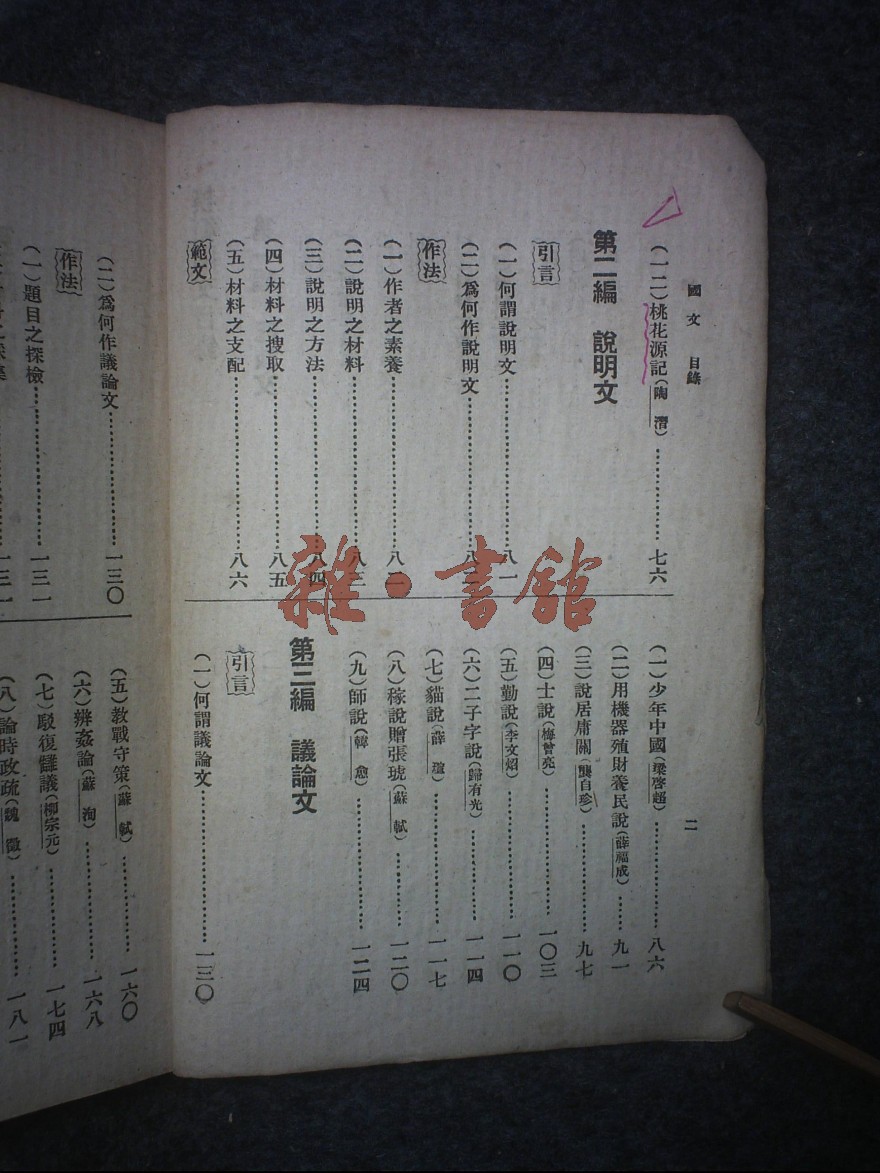 國文 目錄
二
(一二)桃花源記(陶潛)…………七六
第二編 說明文
引言
(一)何謂說明文…………八一
(二)爲何作說明文…………八二
作法
(一)作者之素養…………八二
(二)說明之材料…………八三
(三)說明之方法…………八四
(四)材料之搜取…………八五
(五)材料之支配…………八六
範文
(一)少年中國(梁啓超)…………八六
(二)用機器殖財養民說(薛福成)……九一
(三)說居庸關(龔自珍)…………九七
(四)士說(梅曾亮)…………一〇三
(五)勤說(李文炤)…………一一〇
(六)二子字說(歸有光)…………一一四
(七)貓說(薛瑄)…………一一七
(八)稼說贈張琥(蘇軾)…………一二〇
(九)師說(韓愈)…………一二四
第三編 議論文
引言
(一)何謂議論文…………一三〇
(二)爲何作議論文…………一三〇
作法
(一)題目之探檢…………一三一
一三一
(五)教戰守策(蘇軾)…………一六〇
(六)辨姦論(蘇洵)…………一六八
(七)駁復讎議(柳宗元)…………一七四
(八)論時政疏(魏徵)…………一八一
雜·書館